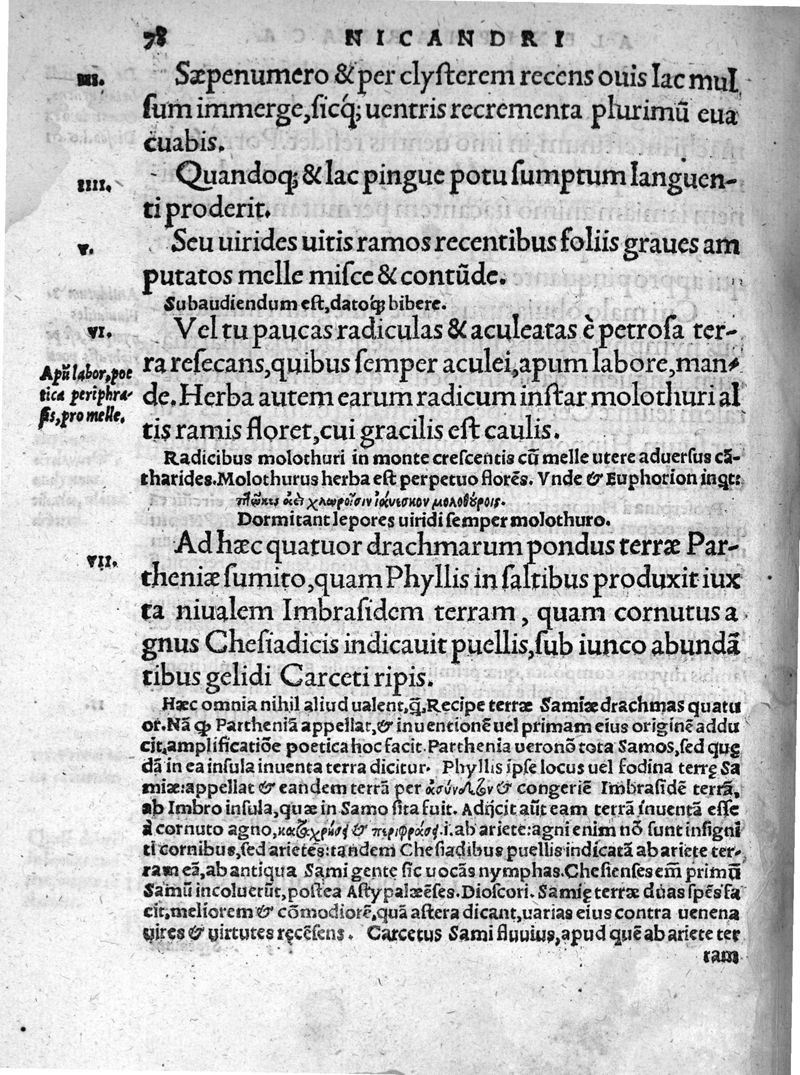 78 NICANDRI
III. Sæpenumero & per clysterem recens ouis lac mul
sum immerge, sicq; uentris recrementa plurimū eua
cuabis.
IIII. Quandoq; & lac pingue potu sumptum languen-
ti proderit.
V. Seu uirides uitis ramos recentibus foliis graues am
putatos melle misce & contūde.
Subaudiendum est, datoq; bibere.
VI. Vel tu paucas radiculas & aculeatas è petrosa ter-
ra resecans, quibus semper aculei, apum labore, man-
Apū labor, poe
tica periphra-
sis, pro melle.
de. Herba autem earum radicum instar molothuri al
tis ramis floret, cui gracilis est caulis.
Radicibus molothuri in monte crescentis cū melle utere aduersus cā-
tharides. Molothurus herba est perpetuo florēs. Vnde & Euphorion inqt:
πτῶκες ἀεὶ χλωροῖσιν ἰάνεσκον μολοθούροις.
Dormitant lepores uiridi semper molothuro.
VII. Ad hæc quatuor drachmarum pondus terræ Par-
theniæ sumito, quam Phyllis in saltibus produxit iux
ta niualem Imbrasidem terram, quam cornutus a
gnus Chesiadicis indicauit puellis, sub iunco abundā
tibus gelidi Carceti ripis.
Hæc omnia nihil aliud ualent, q̄, Recipe terræ Samiæ drachmas quatu
or. Nā qp Partheniā appellat, & inuentionē uel primam eius originē addu
cit, amplificatiōe poetica hoc facit. Parthenia uero nō tota Samos, sed quę
dā in ea insula inuenta terra dicitur. Phyllis ipse locus uel fodina terrę Sa
miæ: appellat & eandem terrā per & congeriē Imbrasidē terrā,
ab Imbro insula, quæ in Samo sita fuit. Adijcit aūt eam terrā inuentā esse
à cornuto agno, καταχρήσει & περιφράσει .i. ab ariete: agni enim nō sunt insigni
ti cornibus, sed arietes: tandem Chesiadibus puellis indicatā ab ariete ter-
ram eā, ab antiqua Sami gente sic uocās nymphas. Chesienses em̄ primū
Samū incoluerūt, postea Astypalæēses. Dioscori. Samię terræ duas spēs fa
cit, meliorem & cōmodiorē, quā astera dicant, uarias eius contra uenena
uires & uirtutes recēsens. Carcetus Sami fluuius, apud quē ab ariete ter
ram